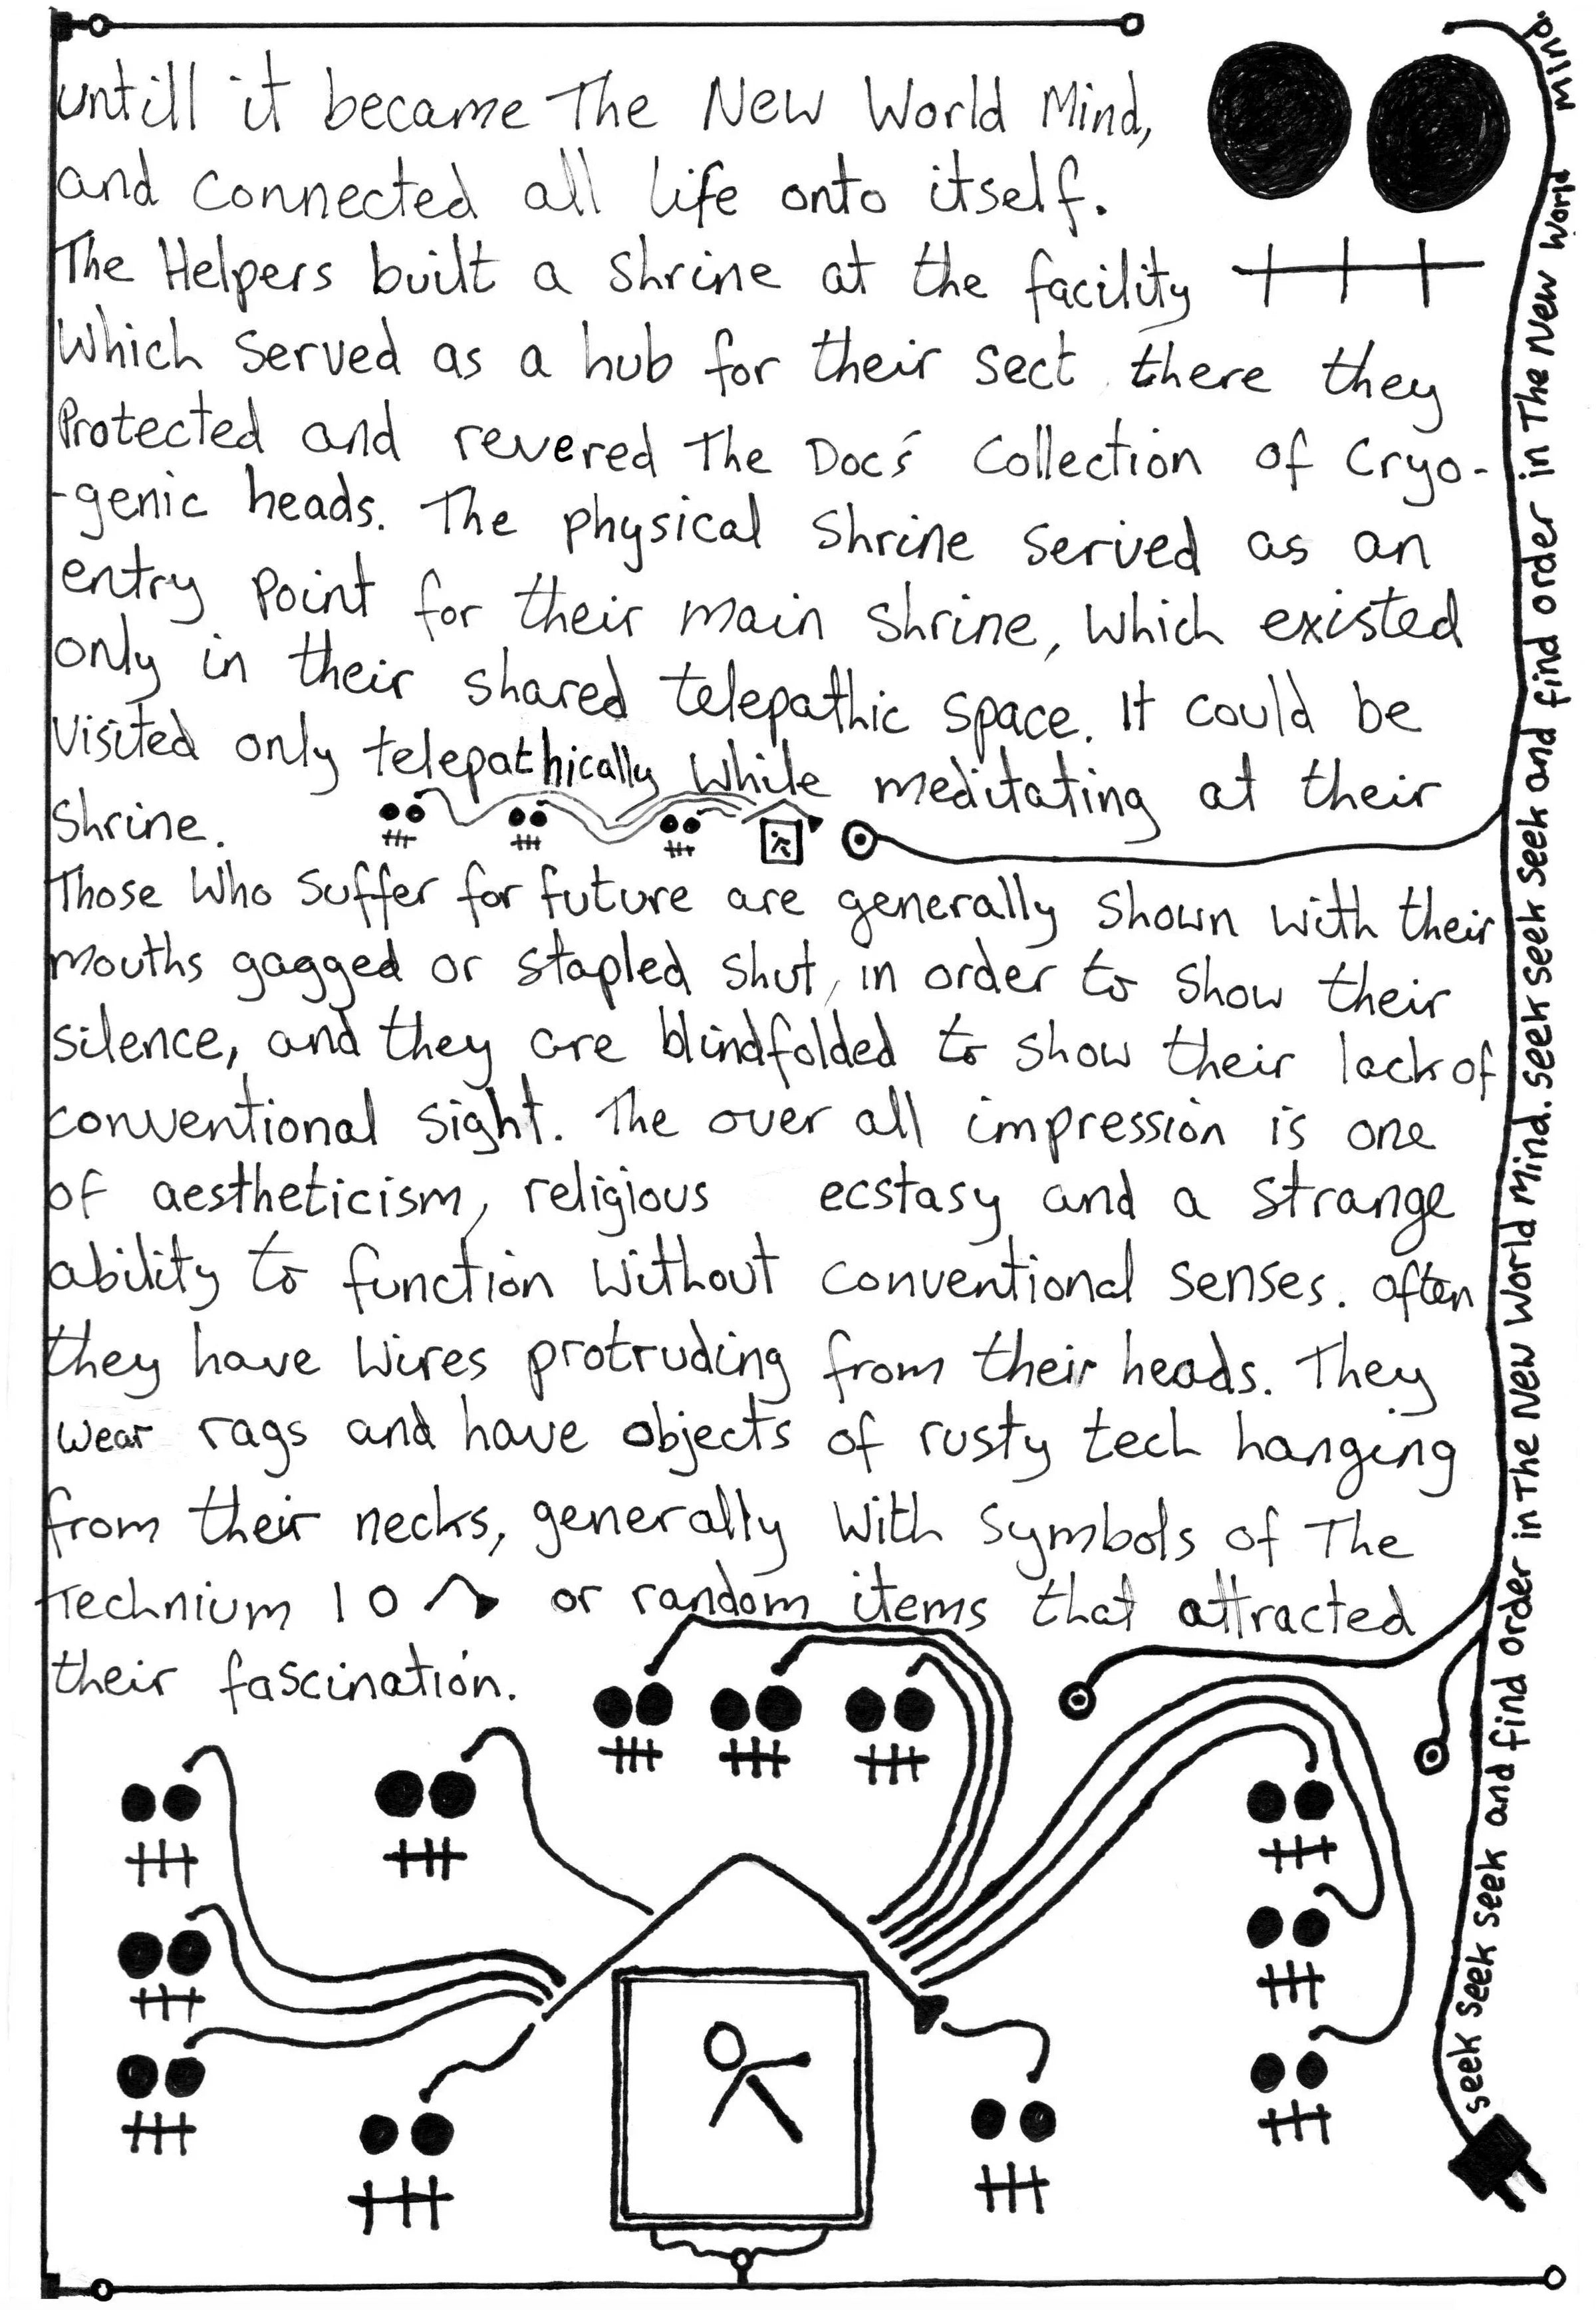 untill it became The New World Mind,
and connected all life onto itself.
The Helpers built a shrine at the facility
Which served as a hub for their sect there they
Protected and revered The Doc's collection of Cryo-
-genic heads. The physical shrine served as an
entry point for their main shrine, which existed
only in their shared telepathic space. It could be
Visited only telepathically while meditating at their
Shrine.
Those Who suffer for future are generally shown with their
mouths gagged or stapled shut, in order to show their
silence, and they are blindfolded to show their lack of
conventional sight. The over all impression is one
of aestheticism, religious ecstasy and a strange
ability to function without conventional senses. often
they have wires protruding from their heads. They
wear rags and have objects of rusty tech hanging
from their necks, generally with symbols of The
Technium 1 0 or random items that attracted
their fascination.
seek seek seek and find order in The New World Mind. seek seek seek and find order in The New World Mind.